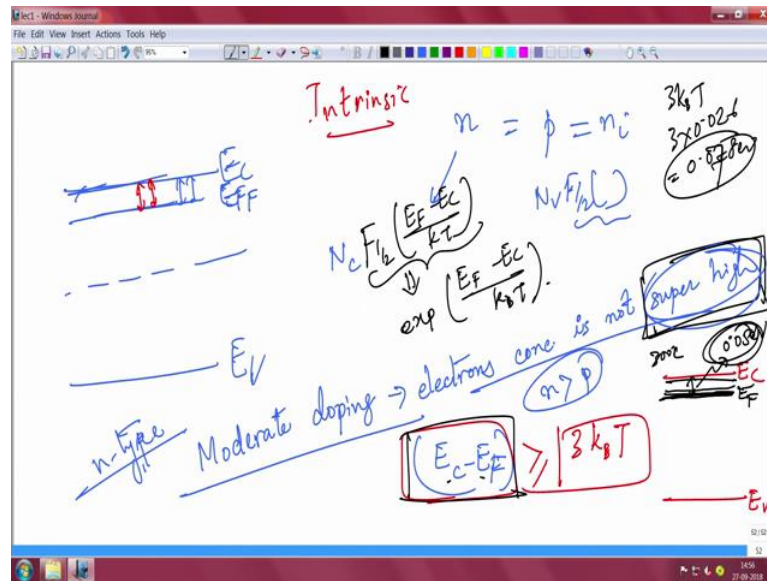 lec1 - Windows Journal
File Edit View Insert Actions Tools Help
Intrinsic
n = p = ni
3kBT
3x0.026
= 0.078eV
EC
EF
NC F1/2 (EF - EC / kT)
NV F1/2( )
exp (EF - EC / kBT).
EV
n-type
Moderate doping → electrons conc is not super high
n > p
(EC - EF) ≥ 3kBT
EC
EF
EV
52/52
52
14:56
27-09-2018